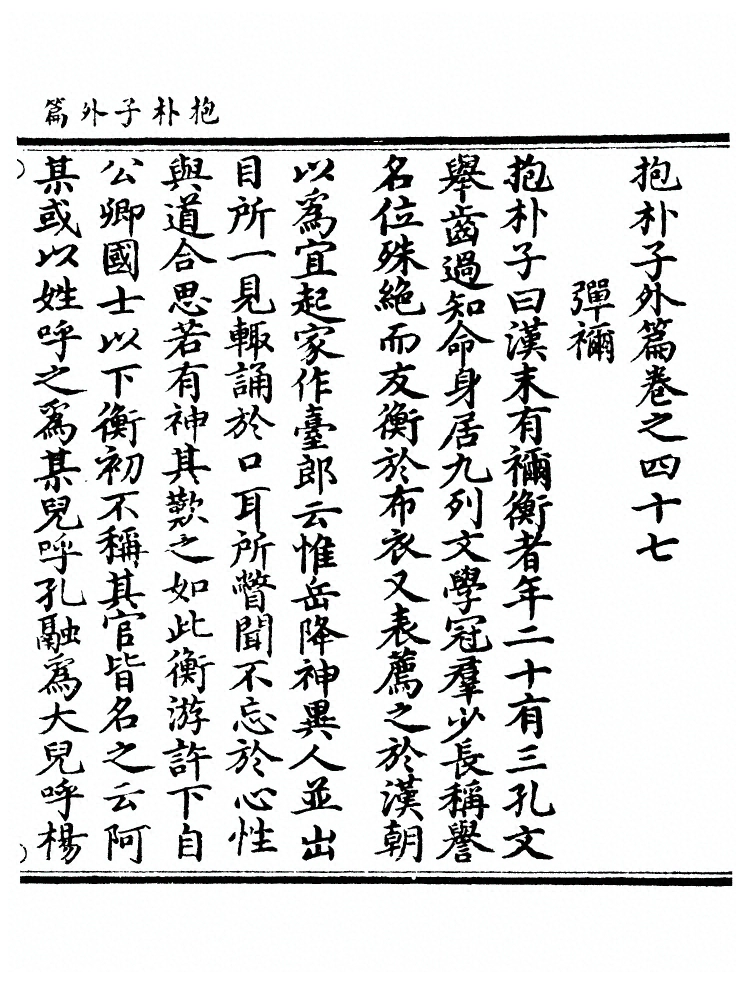 抱朴子外篇
抱朴子外篇卷之四十七
彈禰
抱朴子曰漢末有禰衡者年二十有三孔文
舉齒過知命身居九列文學冠羣少長稱譽
名位殊絶而友衡於布衣又表薦之於漢朝
以爲宜起家作臺郎云惟岳降神異人並出
目所一見輙誦於口耳所瞥聞不忘於心性
與道合思若有神其歎之如此衡游許下自
公卿國士以下衡初不稱其官皆名之云阿
某或以姓呼之爲某兒呼孔融爲大兒呼楊